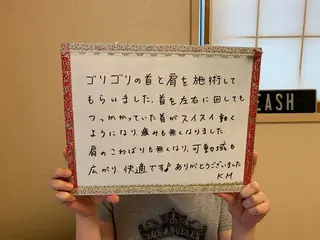 ゴリゴリの首と肩を施術して
もらいました。首を左右に回しても
つっかかっていた首がスイスイ動く
ようになり、痛みも無くなりました。
肩のこわばりも無くなり、可動域も
広がり、快適です♪ ありがとうございました
K M
EASH
LOS ANGELES